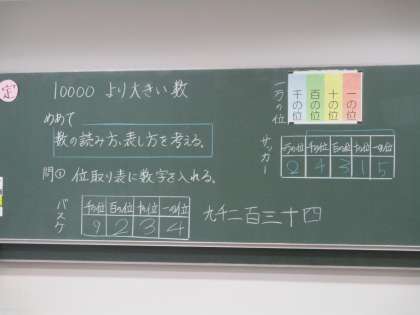 10000 より大きい数
めあて
数の読み方、表し方を考える。
問① 位取り表に数字を入れる。
バスケ
千の位 百の位 十の位 一の位
9 2 3 4
九千二百三十四
一万の位 千の位 百の位 十の位 一の位
サッカー
一万の位 千の位 百の位 十の位 一の位
2 4 3 1 5